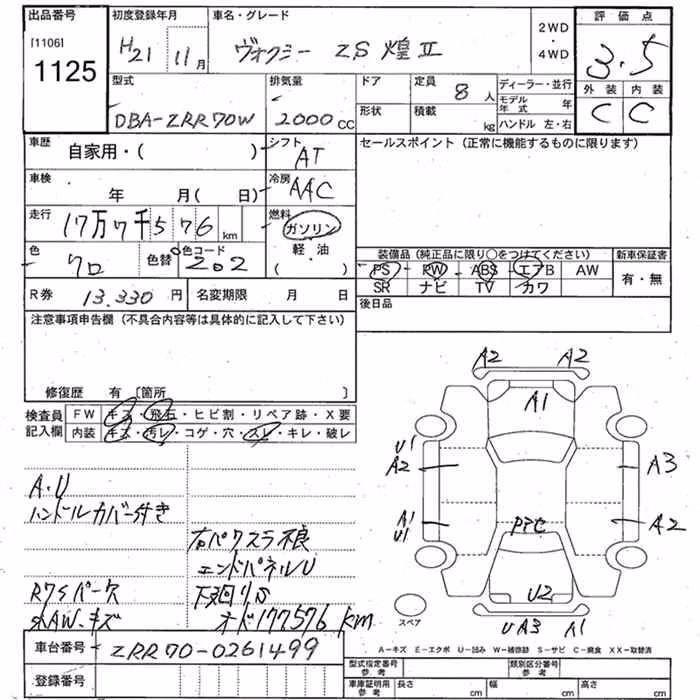 出品番号 初度登録年月 車名・グレード 評価点
[1106] 1125 H21 11月 ヴォクシー ZS 煌Ⅱ 2WD・4WD 3.5
型式 排気量 ドア 定員 8人 ディーラー・並行 外装 内装
DBA-ZRR70W 2000cc 形状 積載 kg モデル年式 年 ハンドル 左・右 C C
車歴 自家用・( ) シフト AT セールスポイント (正常に機能するものに限ります)
車検 年 月( 日) 冷房 AAC
走行 17万7千576km 燃料 ガソリン・軽・油 ( )
色 クロ 色替 色コード 202 装備品 (純正品に限り○をつけてください) 新車保証書
PS PW ABS エアB AW 有・無
SR ナビ TV カワ
R券 13.330円 名変期限 月 日 後日品
注意事項申告欄 (不具合内容等は具体的に記入して下さい)
修復歴 有 〔箇所 〕
検査員記入欄 FW キズ・飛石・ヒビ割・リペア跡・X要
内装 キズ・汚レ・コゲ・穴・スレ・キレ・破レ
A2 A2
A1
U1
A2 A3
A1
U1 A2
U2
UA3 A1
スペア
A.U
ハンドルカバー付き
右バックスラ不良
エンドパネルU
Rワイパー欠 下廻りS
AW.キズ オド177576km
A-キズ E-エクボ U-凹み W-補修跡 S-サビ C-腐食 XX-取替済
車台番号 ZRR70-0261499 型式指定番号 参考 類別区分番号 参考
登録番号 車庫証明用 参考 長さ cm 幅 cm 高さ cm